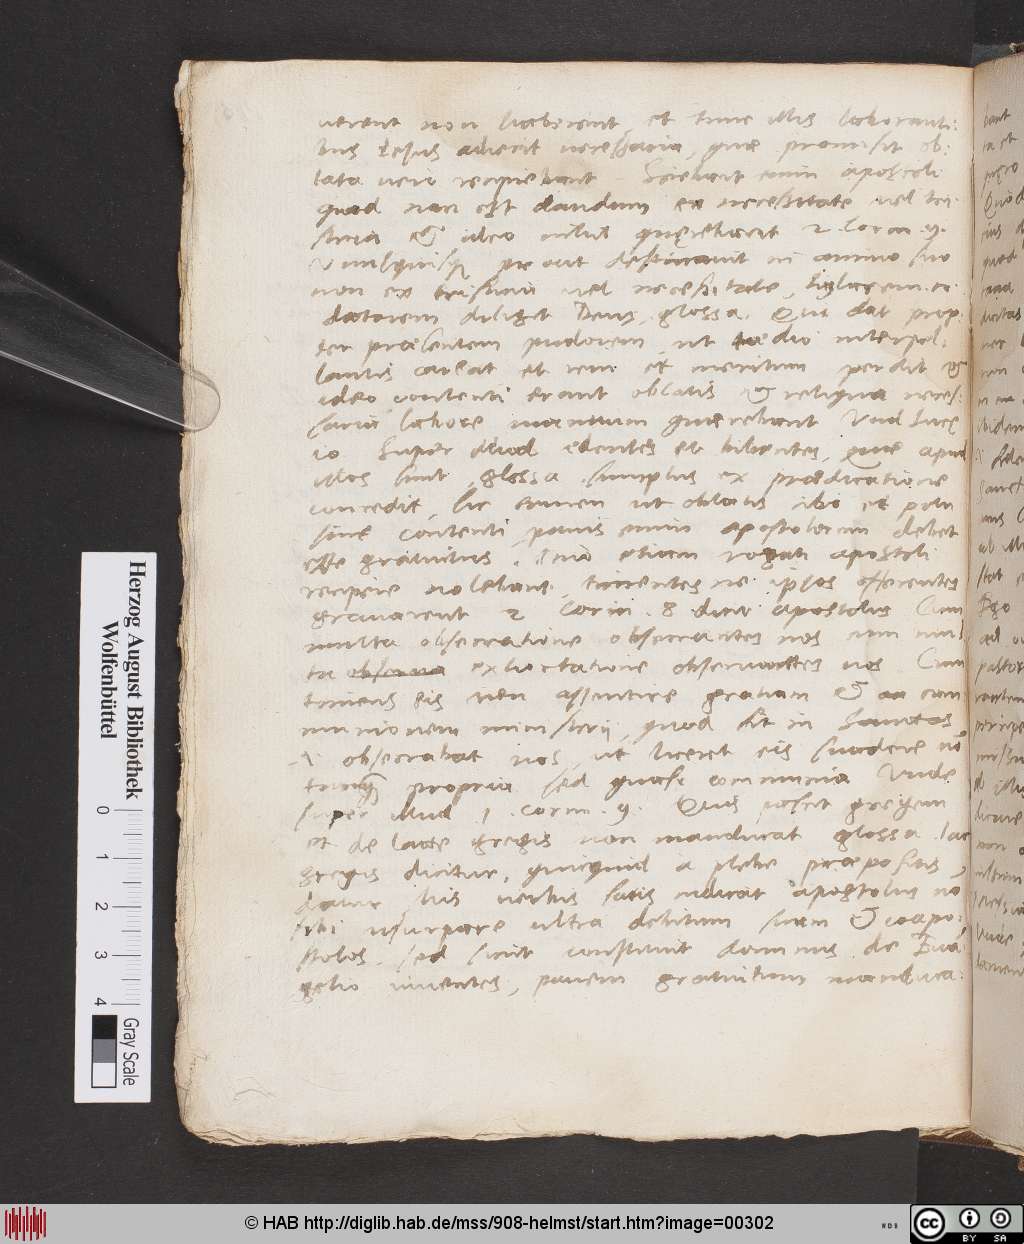 uerent non haberent, et tunc illis laboranti:
bus Iesus aderit necessaria, quæ promisit ob:
lata uero recipiebant. Sciebant enim apostoli
quod non est dandum ex necessitate uel tri:
stitia & ideo nihil querebant 2 Corin 9.
Vnusquisq prout destinauit in animo suo
non ex tristitia uel necessitate, hylarem .n.
datorem diliget Deus, glossa. Qui dat prop:
ter præsentem pudorem, ut tædio interpel:
lantis careat et rem et meritum perdit &
ideo contenti erant oblatis & reliqua neces:
saria labore manuum querebant Vnd Luc
10 Super illud edentes et bibentes, quæ apud
illos sunt, glossa. sumptus ex prædicatione
concedit, sic tamen ut oblatis cibo et potu
sint contenti, panis enim apostolorum debet
esse gratuitus. Imo etiam rogati apostoli
recipere nolebant, timentes ne ipsos offerentes
grauarent 2 Corin .8 dicit apostolus Cum
multa obsecratione obsecrantes nos cum mul
ta exhortatione obseruantes nos Cum
eis non assentire gratiam & com
munionem ministerij, quod fit in Sanctos
.i. obsecrabat nos, ut liceret eis suadere nō
propria sed quasi communia Vnde
super illud 1 Corin 9. Quis pascit gregem
et de lacte gregis non manducat glossa. lac
gregis dicitur, quicquid a plebe præpositis
datur, his uerbis satis indicat apostolus nō
sibi usurpare ultra debitum suum & coapo:
stolos. sed sicut constituit dominus de Euā:
gelio uiuentes, panem gratuitum manduca:
Herzog August Bibliothek
Wolfenbüttel
0 1 2 3 4
Gray Scale
© HAB http://diglib.hab.de/mss/908-helmst/start.htm?image=00302
WDB
cc BY SA